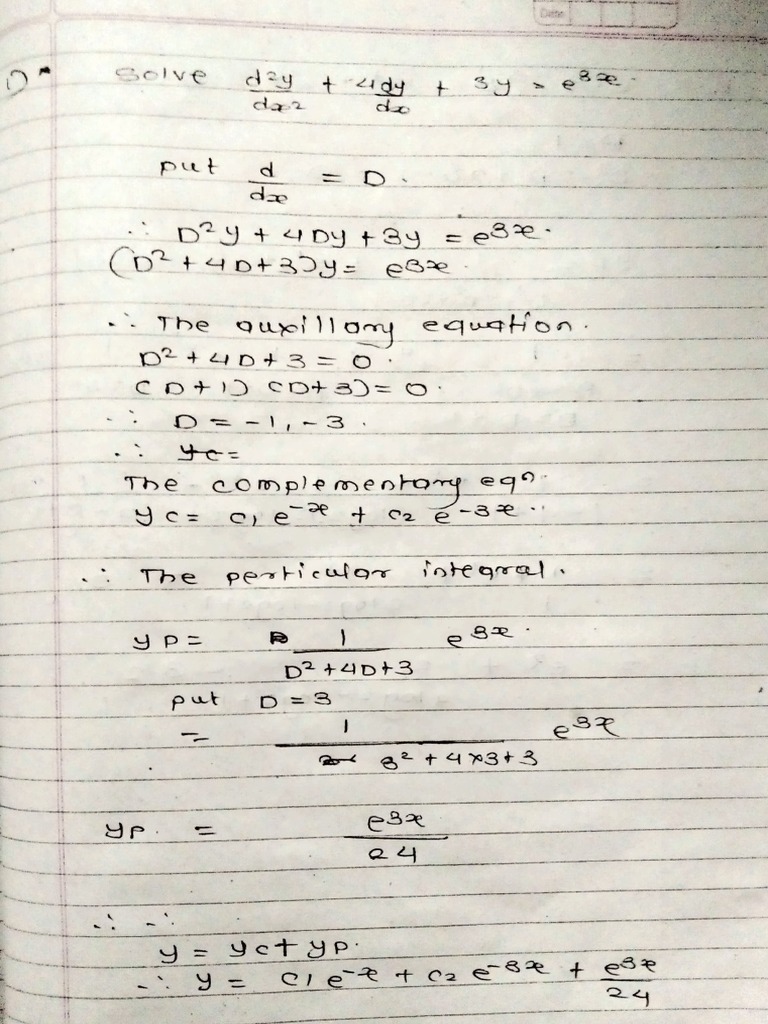 Date
1) Solve d²y/dx² + 4dy/dx + 3y = e^3x.
put d/dx = D.
∴ D²y + 4Dy + 3y = e^3x.
(D² + 4D + 3)y = e^3x.
∴ The auxillary equation.
D² + 4D + 3 = 0.
(D + 1) (D + 3) = 0.
∴ D = -1, -3.
∴ yc =
The complementary eqn.
yc = c1 e^-x + c2 e^-3x.
∴ The perticular integral.
yp = 1/(D² + 4D + 3) e^3x.
put D = 3
= 1/(3² + 4×3 + 3) e^3x
yp. = e^3x/24
∴ ∴
y = yc + yp.
∴ y = c1 e^-x + c2 e^-3x + e^3x/24